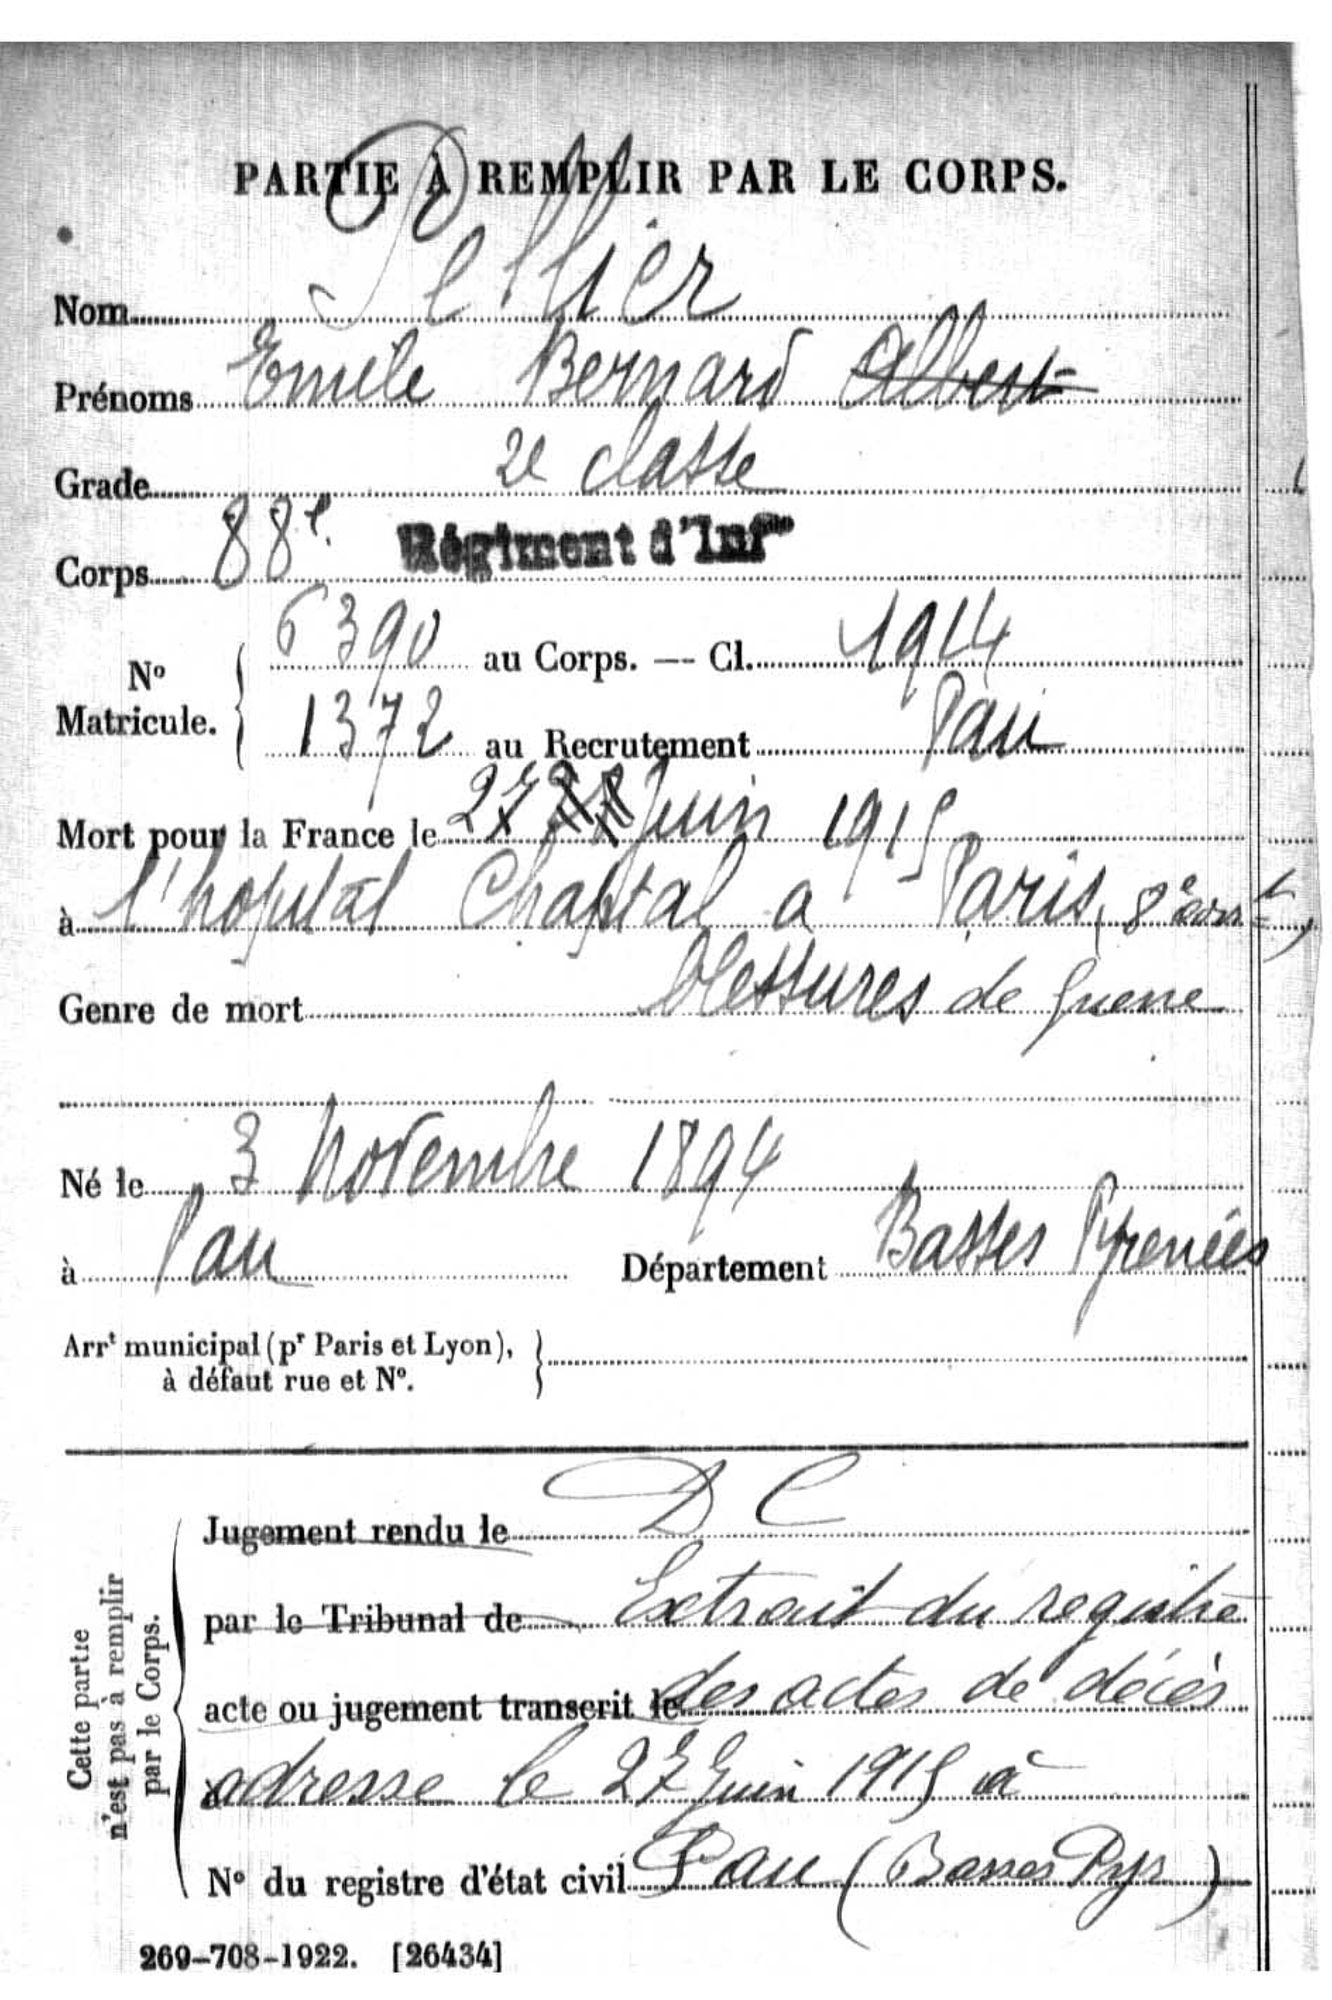 PARTIE À REMPLIR PAR LE CORPS.
Nom Pellier
Prénoms Emile Bernard Albert
Grade 2e classe
Corps 88e Régiment d'Infie
No Matricule. 6390 au Corps. — Cl. 1914
1372 au Recrutement Pau
Mort pour la France le 27 Juin 1915
à l'hopital Chaptal a Paris, 8e arrt,
Genre de mort blessures de guerre
Né le 3 Novembre 1894
à Pau Département Basses Pyrenées
Arrt municipal (pr Paris et Lyon),
à défaut rue et No.
Cette partie
n'est pas à remplir
par le Corps.
Jugement rendu le D C
par le Tribunal de Extrait du registre
acte ou jugement transcrit le des actes de décès
adresse le 27 Juin 1915 à
No du registre d'état civil Pau (Basses Pyr)
269-708-1922. [26434]